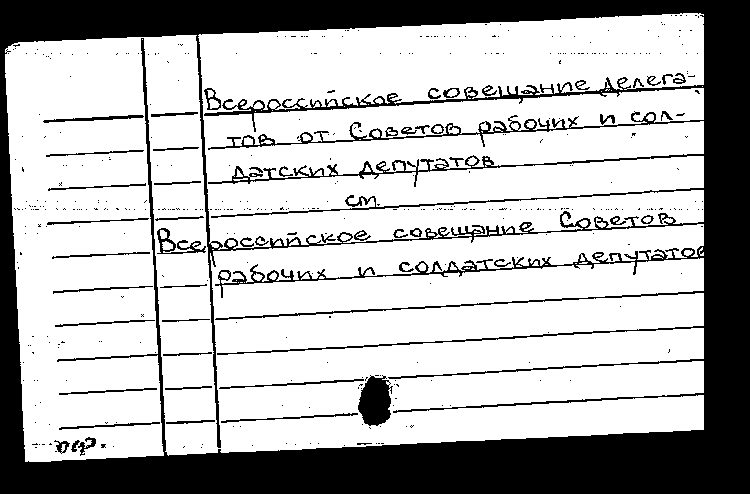 Всероссийское совещание делега-
тов от Советов рабочих и сол-
датских депутатов
см.
Всероссийское совещание Советов
рабочих и солдатских депутатов